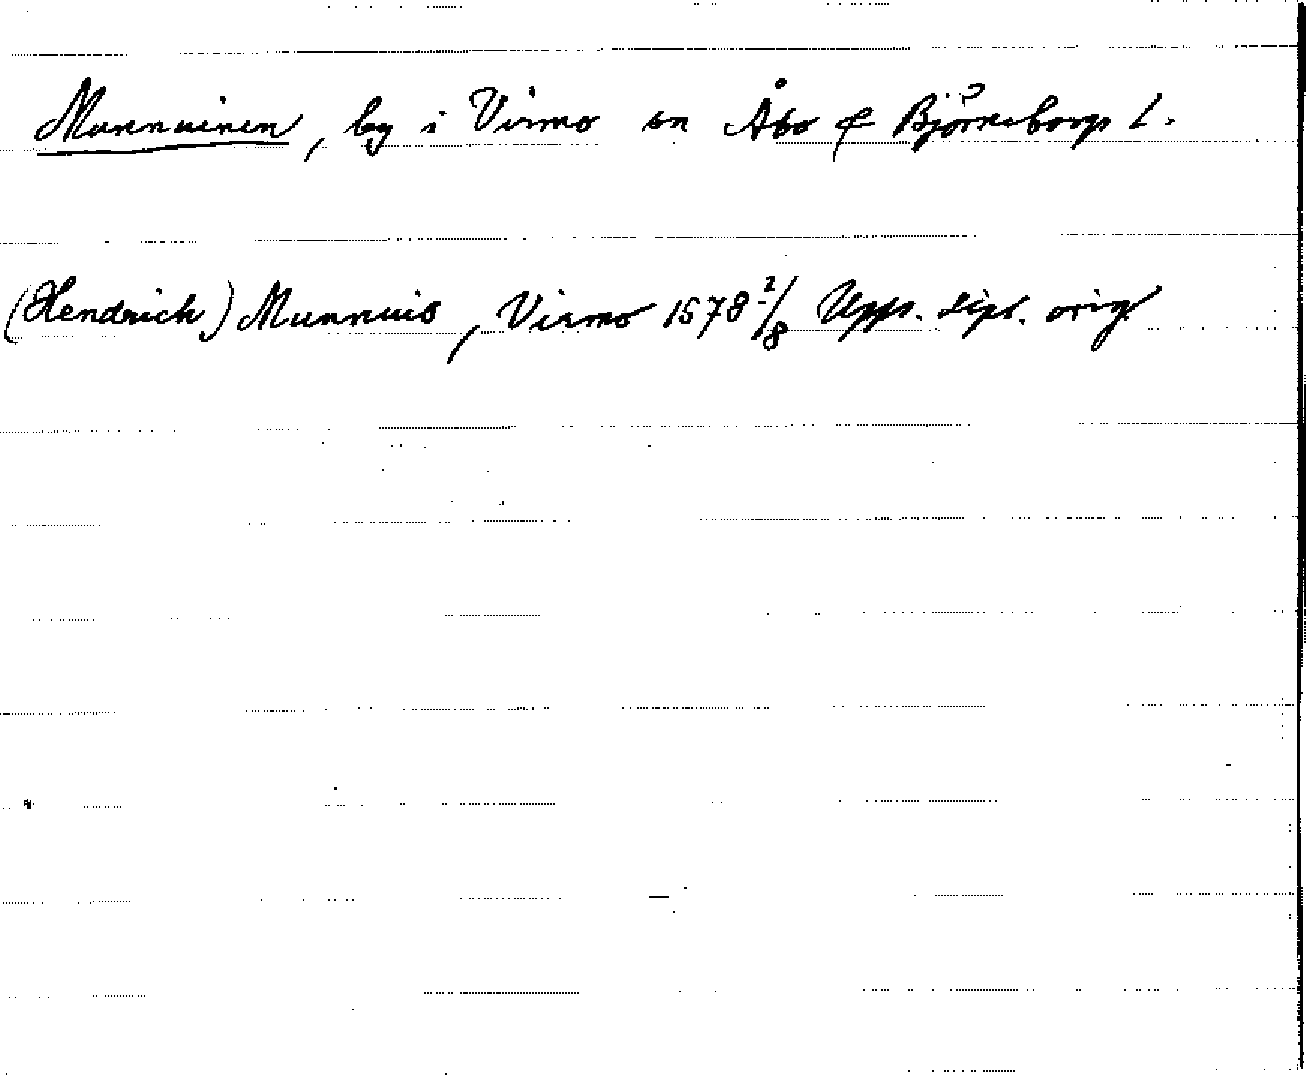 Munnuinen, by i Virmo sn Åbo & Björneborgs l.
(Hendrich) Munnuis, Virmo 1578 2/8 Upps. dipl. orig.